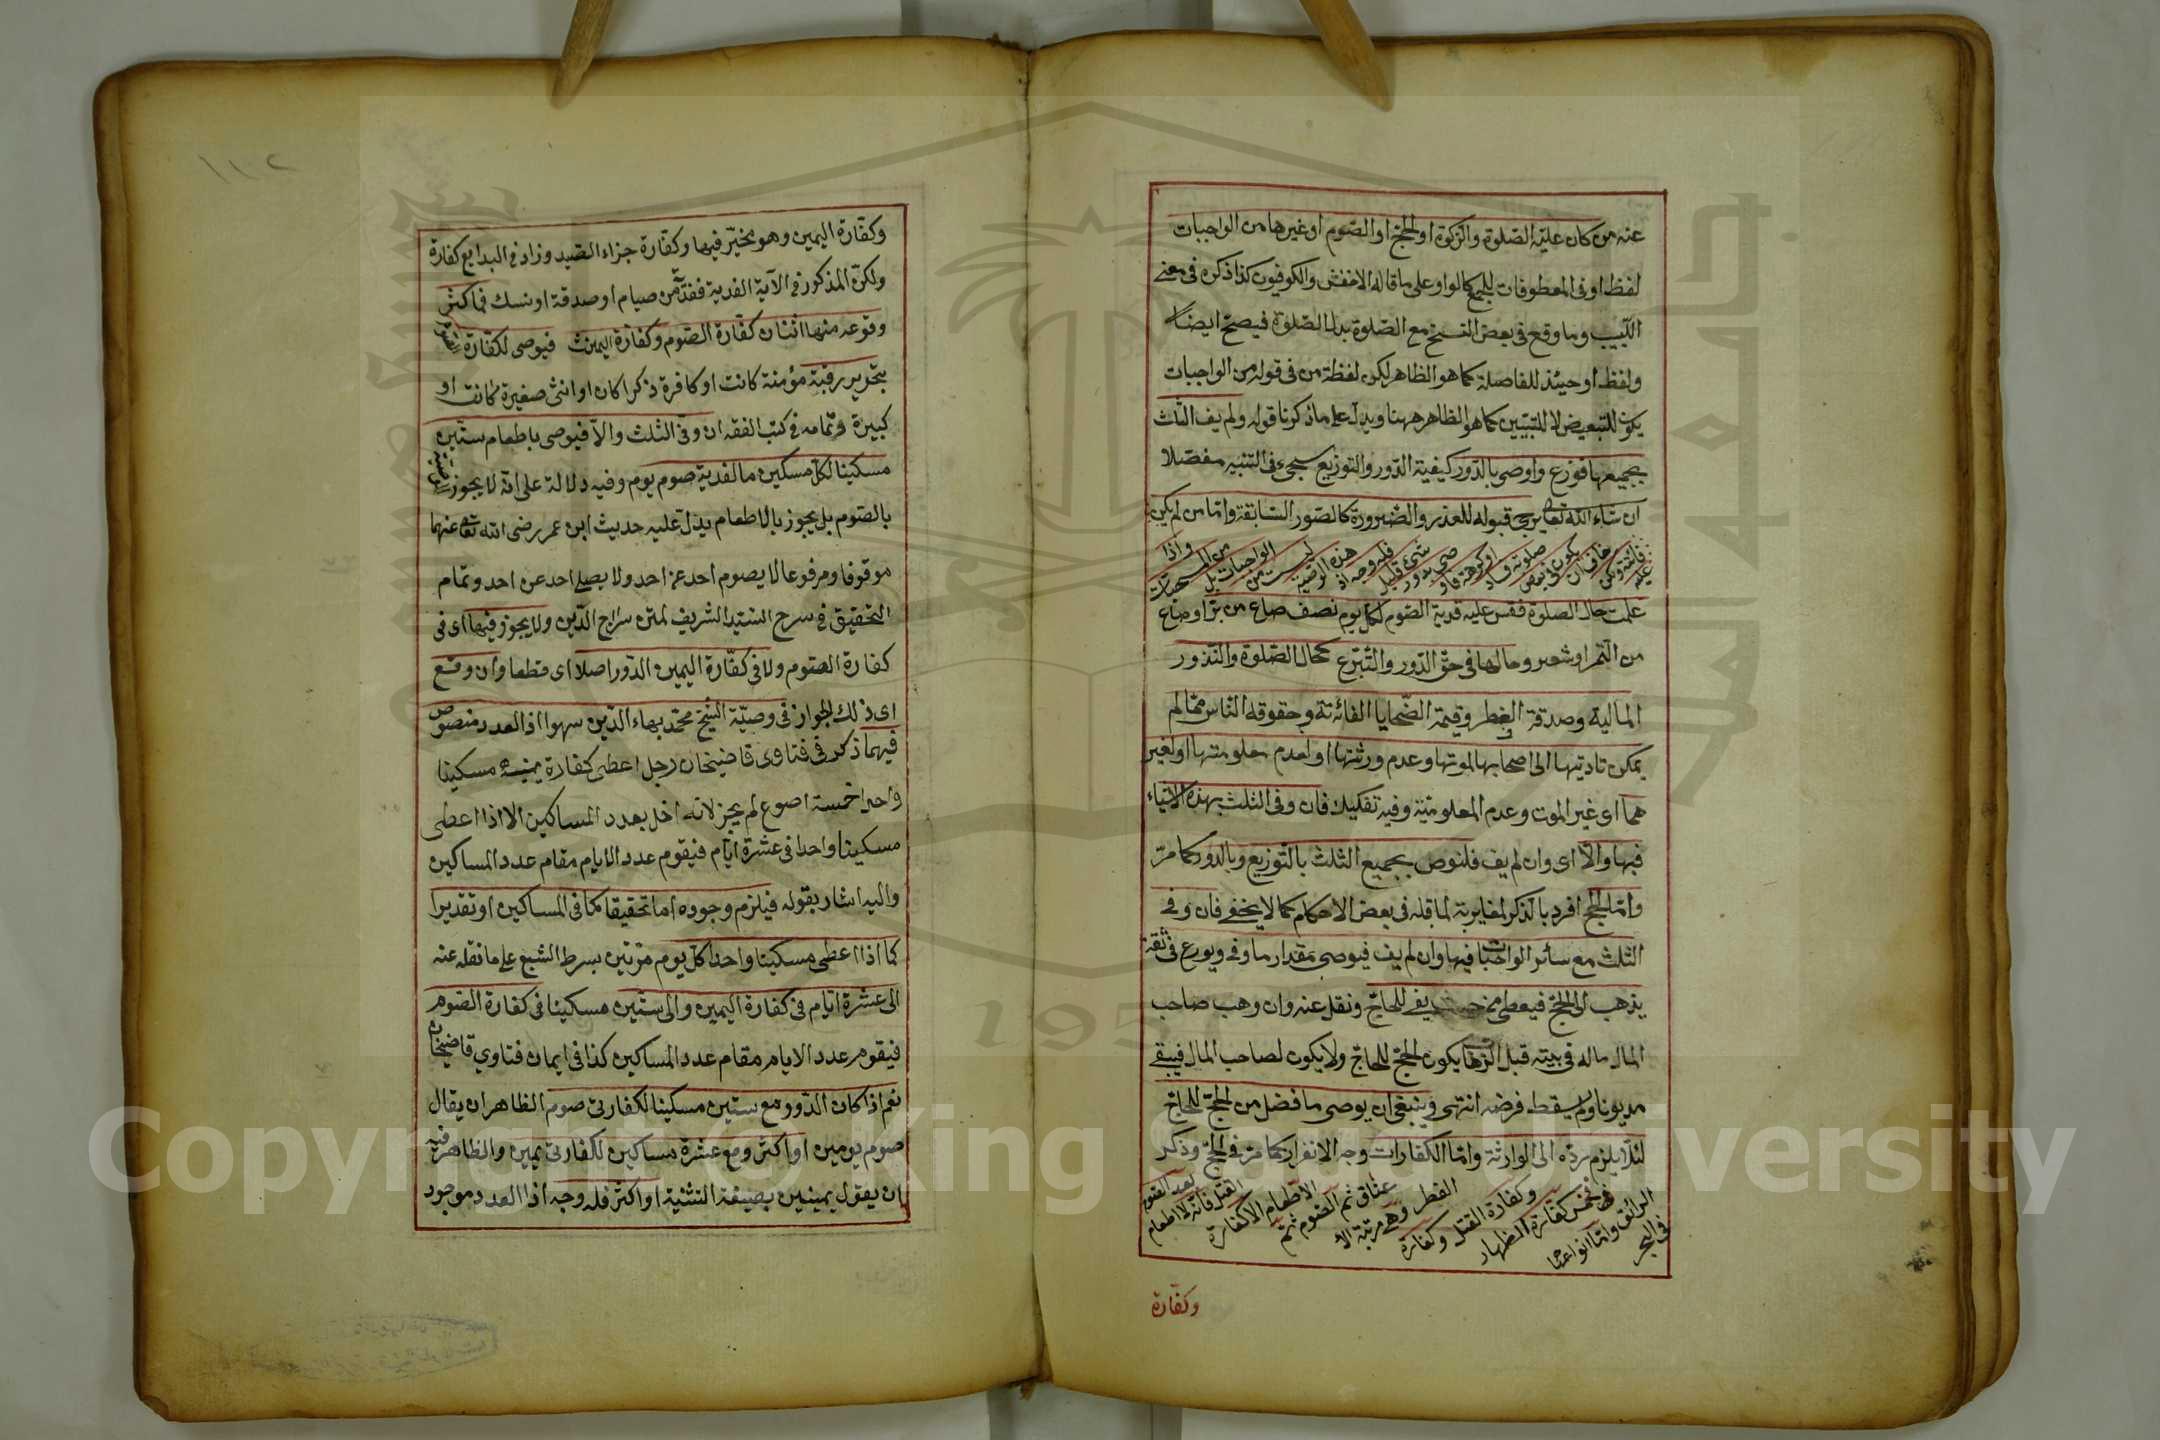 عنه من كان عليه الصلوة والزكوة او الحج او الصوم او غيرها من الواجبات
لفظ او فى المعطوفات للجمع كالواو على ما قاله الاخفش والكوفيون كذا ذكره فى مغنى
اللبيب وما وقع فى بعض النسخ مع الصلوة بدل الصلوة فيصح ايضا
ولفظ او حينئذ للفاصلة كما هو الظاهر لكن لفظة من فى قوله من الواجبات
يكون للتبعيض لا للتبيين كما هو الظاهر ههنا ويدل على ما ذكرنا قوله ولم يف الثلث
بجميعها فوزع واوصى بالدور كيفية الدور والتوزيع سيجئ فى التنبيه مفصلا
ان شاء الله تعالى يرجى قبوله للعذر والضرورة كالصور السابقة واما من لم يكن
علمت حال الصلوة فقس عليه فدية الصوم لكل يوم نصف صاع من بر او صاع
من التمر او شعير وحالها فى حق الدور والتبرع كحال الصلوة والنذور
المالية وصدقة الفطر وقيمة الضحايا الفائتة وحقوقه الناس مما لم
يمكن تاديتها الى اصحابها لموتها وعدم ورثتها او لعدم معلوميتها او لغير
هما اى غير الموت وعدم المعلومية وفيه تفكيك فان وفى الثلث بهذه الاشياء
فبها والا اى وان لم يف فلنوص بجميع الثلث بالتوزيع وبالدور كما مر
واما الحج افرد بالذكر لمغايرته لما قبله فى بعض الاحكام كما لا يخفى فان وفى
الثلث مع سائر الواجبات فبها وان لم يف فيوصى مقدار ما وفى ويورع فى ثقة
يذهب الى الحج فيعطى من يفى للحاج ونقل عنه وان وهب صاحب
المال ماله فى بيته قبل الذهاب يكون الحج للحاج ولا يكون لصاحب المال فيبقى
مديونا ولم يسقط فرضه انتهى وينبغى ان يوصى ما فضل من الحج للحاج
لئلا يلزم رده الى الوارثة واما الكفارات وجه الانفراد كما مر فى الحج وذكر
وكفارة
١١٠٢
وكفارة اليمين وهو مخير فيها وكفارة جزاء الصيد وزاد فى البدايع كفارة
ولكن المذكور فى الآية الفدية ففدية من صيام او صدقة او نسك فما كثر
وقوعه منها اثنان كفارة الصوم وكفارة اليمين فيوصى لكفارة
بتحرير رقبة مؤمنة كانت او كافرة ذكرا كان او انثى صغيرة كانت او
كبيرة وتمامه فى كتب الفقه ان وفى الثلث والا فيوصى باطعام ستين
مسكينا لكل مسكين ما لفدية صوم يوم وفيه دلالة على انه لا يجوز
بالصوم بل يجوز بالاطعام يدل عليه حديث ابن عمر رضى الله تعالى عنهما
موقوفا ومرفوعا لا يصوم احد عن احد ولا يصلى احد عن احد وتمام
التحقيق فى شرح السيد الشريف لمتن سراج الدين ولا يجوز فيها اى فى
كفارة الصوم ولا فى كفارة اليمين الدور اصلا اى قطعا وان وقع
اى ذلك الجواز فى وصية الشيخ محمد بهاء الدين سهوا اذ العدد منصوص
فيهما ذكر فى فتاوى قاضيخان رجل اعطى كفارة يمينه مسكينا
واحدا خمسة اصوع لم يجز لانه اخل بعدد المساكين الا اذا اعطى
مسكينا واحدا فى عشرة ايام فيقوم عدد الايام مقام عدد المساكين
واليه اشار بقوله فيلزم وجوده اما تحقيقا كما فى المساكين او تقديرا
كما اذا اعطى مسكينا واحدا كل يوم مرتين بشرط الشبع على ما نقله عنه
الى عشرة ايام فى كفارة اليمين والى ستين مسكينا فى كفارة الصوم
فيقوم عدد الايام مقام عدد المساكين كذا فى ايمان فتاوي قاضيخان
نعم اذا كان الدور مع ستين مسكينا لكفارتى صوم الظاهر ان يقال
صوم يومين او اكثر ومع عشرة مساكين لكفارتى يمين والظاهر فيه
ان يقول يمينين بصيغة التثنية او اكثر فله وجه اذ العدد موجود
Copyright © King Saud University
1957